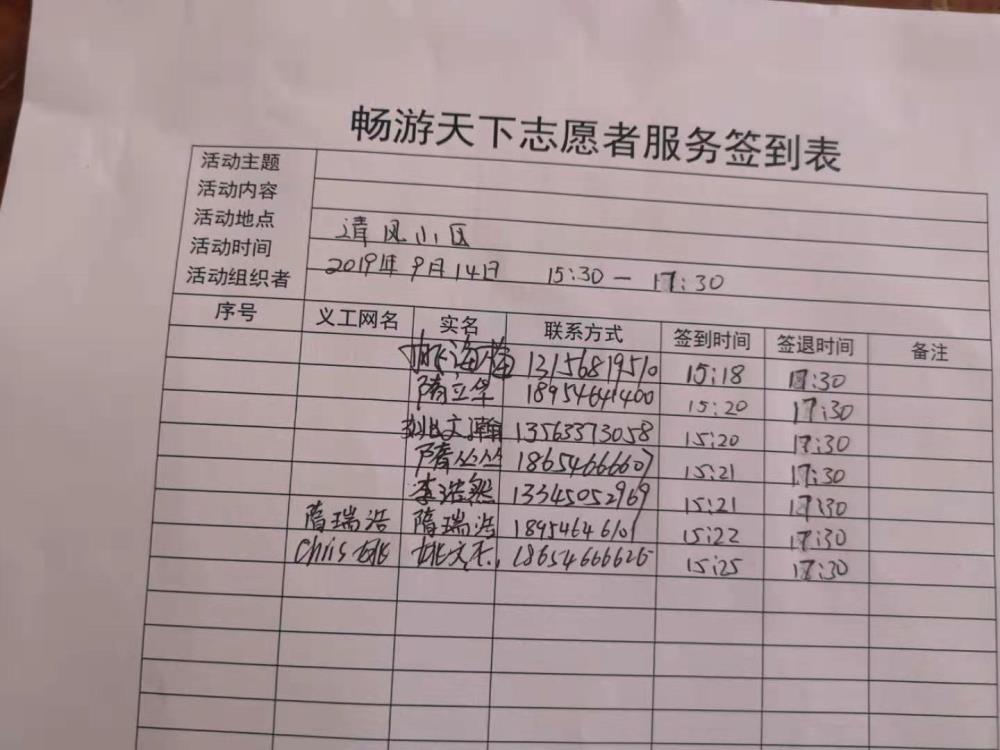 畅游天下志愿者服务签到表
活动主题
活动内容
活动地点 清风小区
活动时间 2019年9月14日 15:30 — 17:30
活动组织者
序号 义工网名 实名 联系方式 签到时间 签退时间 备注
姚海 13156819510 15:18 17:30
隋立华 18954641400 15:20 17:30
姚文瀚 13563373058 15:20 17:30
隋丛丛 18654666607 15:21 17:30
李浩然 13345052969 15:21 17:30
隋瑞浩 隋瑞浩 18954646101 15:22 17:30
Chris姚 姚文杰 18654666626 15:25 17:30